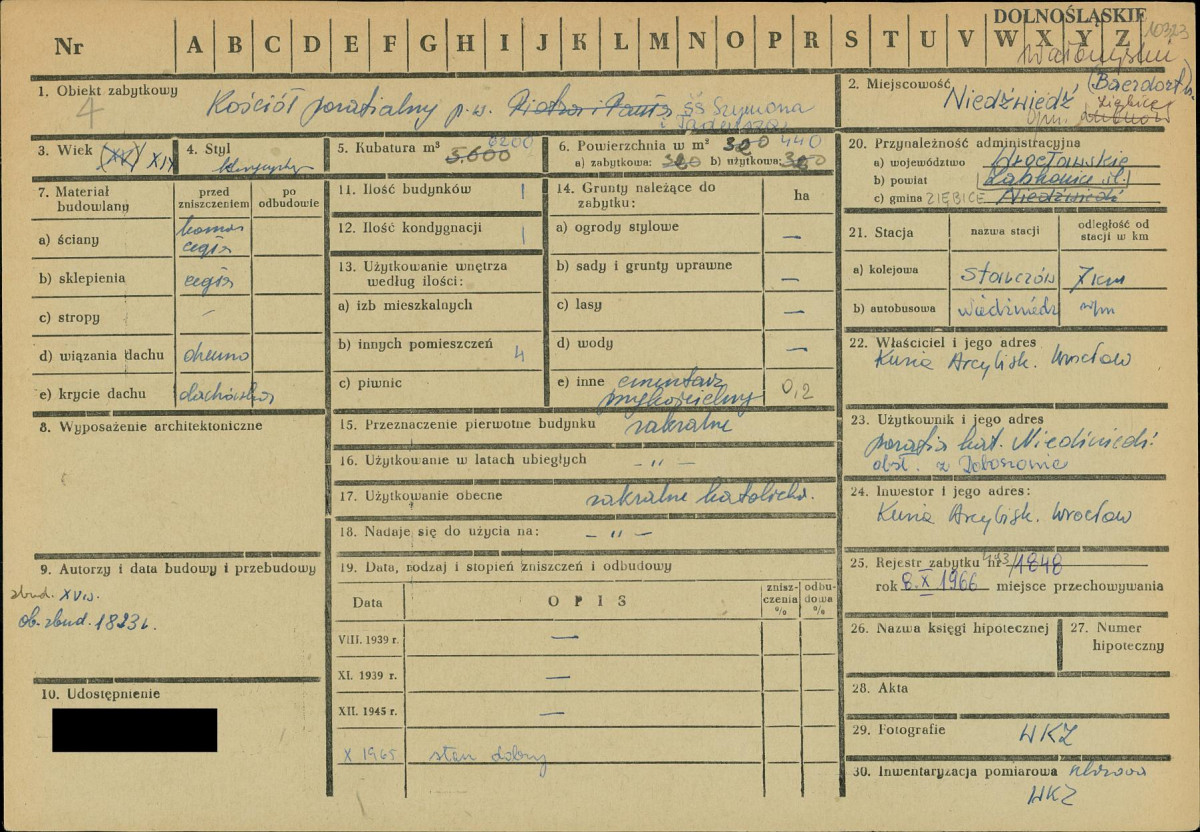 DOLNOŚLĄSKIE
10323
Nr
A B C D E F G H I J K L M N O P R S T U V W X Y Z
1. Obiekt zabytkowy
4
Kościół parafialny p.w. Piotra i Pawła ŚŚ Szymona
i Tadeusza
2. Miejscowość
Niedźwiedź
(Baerdorf)
Ziębice
3. Wiek (XV) XIX
4. Styl
5. Kubatura m³
5.600
6200
6. Powierzchnia w m²
440
a) zabytkowa:
b) użytkowa:
20. Przynależność administracyjna
a) województwo wrocławskie
b) powiat Ząbkowice Śl.
c) gmina ZIĘBICE Niedźwiedź
7. Materiał budowlany
przed zniszczeniem
po odbudowie
a) ściany
kamień
cegła
b) sklepienia
cegła
c) stropy
–
d) wiązania dachu
drewno
e) krycie dachu
dachówka
11. Ilość budynków
1
12. Ilość kondygnacji
1
13. Użytkowanie wnętrza według ilości:
a) izb mieszkalnych
b) innych pomieszczeń
4
c) piwnic
14. Grunty należące do zabytku:
ha
a) ogrody stylowe
–
b) sady i grunty uprawne
–
c) lasy
–
d) wody
–
e) inne cmentarz
przykościelny
0,2
21. Stacja
nazwa stacji
odległość od stacji w km
a) kolejowa
7 km
b) autobusowa
Niedźwiedź
w/m
22. Właściciel i jego adres
Kuria Arcybisk. Wrocław
8. Wyposażenie architektoniczne
15. Przeznaczenie pierwotne budynku
sakralne
16. Użytkowanie w latach ubiegłych
– „ –
17. Użytkowanie obecne
sakralne katolickie.
18. Nadaje się do użycia na:
– „ –
23. Użytkownik i jego adres
parafia kat. Niedźwiedź
obsł. z
24. Inwestor i jego adres:
Kuria Arcybisk. Wrocław
9. Autorzy i data budowy i przebudowy
zbud. XV w.
ob. zbud. 1823 r.
19. Data, rodzaj i stopień zniszczeń i odbudowy
Data
OPIS
zniszczenia %
odbudowa %
VIII. 1939 r.
—
XI. 1939 r.
—
XII. 1945 r.
—
X 1965
stan dobry
25. Rejestr zabytku nr 493/1848
rok 8.X 1966 miejsce przechowywania
26. Nazwa księgi hipotecznej
27. Numer hipoteczny
10. Udostępnienie
28. Akta
29. Fotografie
WKZ
30. Inwentaryzacja pomiarowa
WKZ